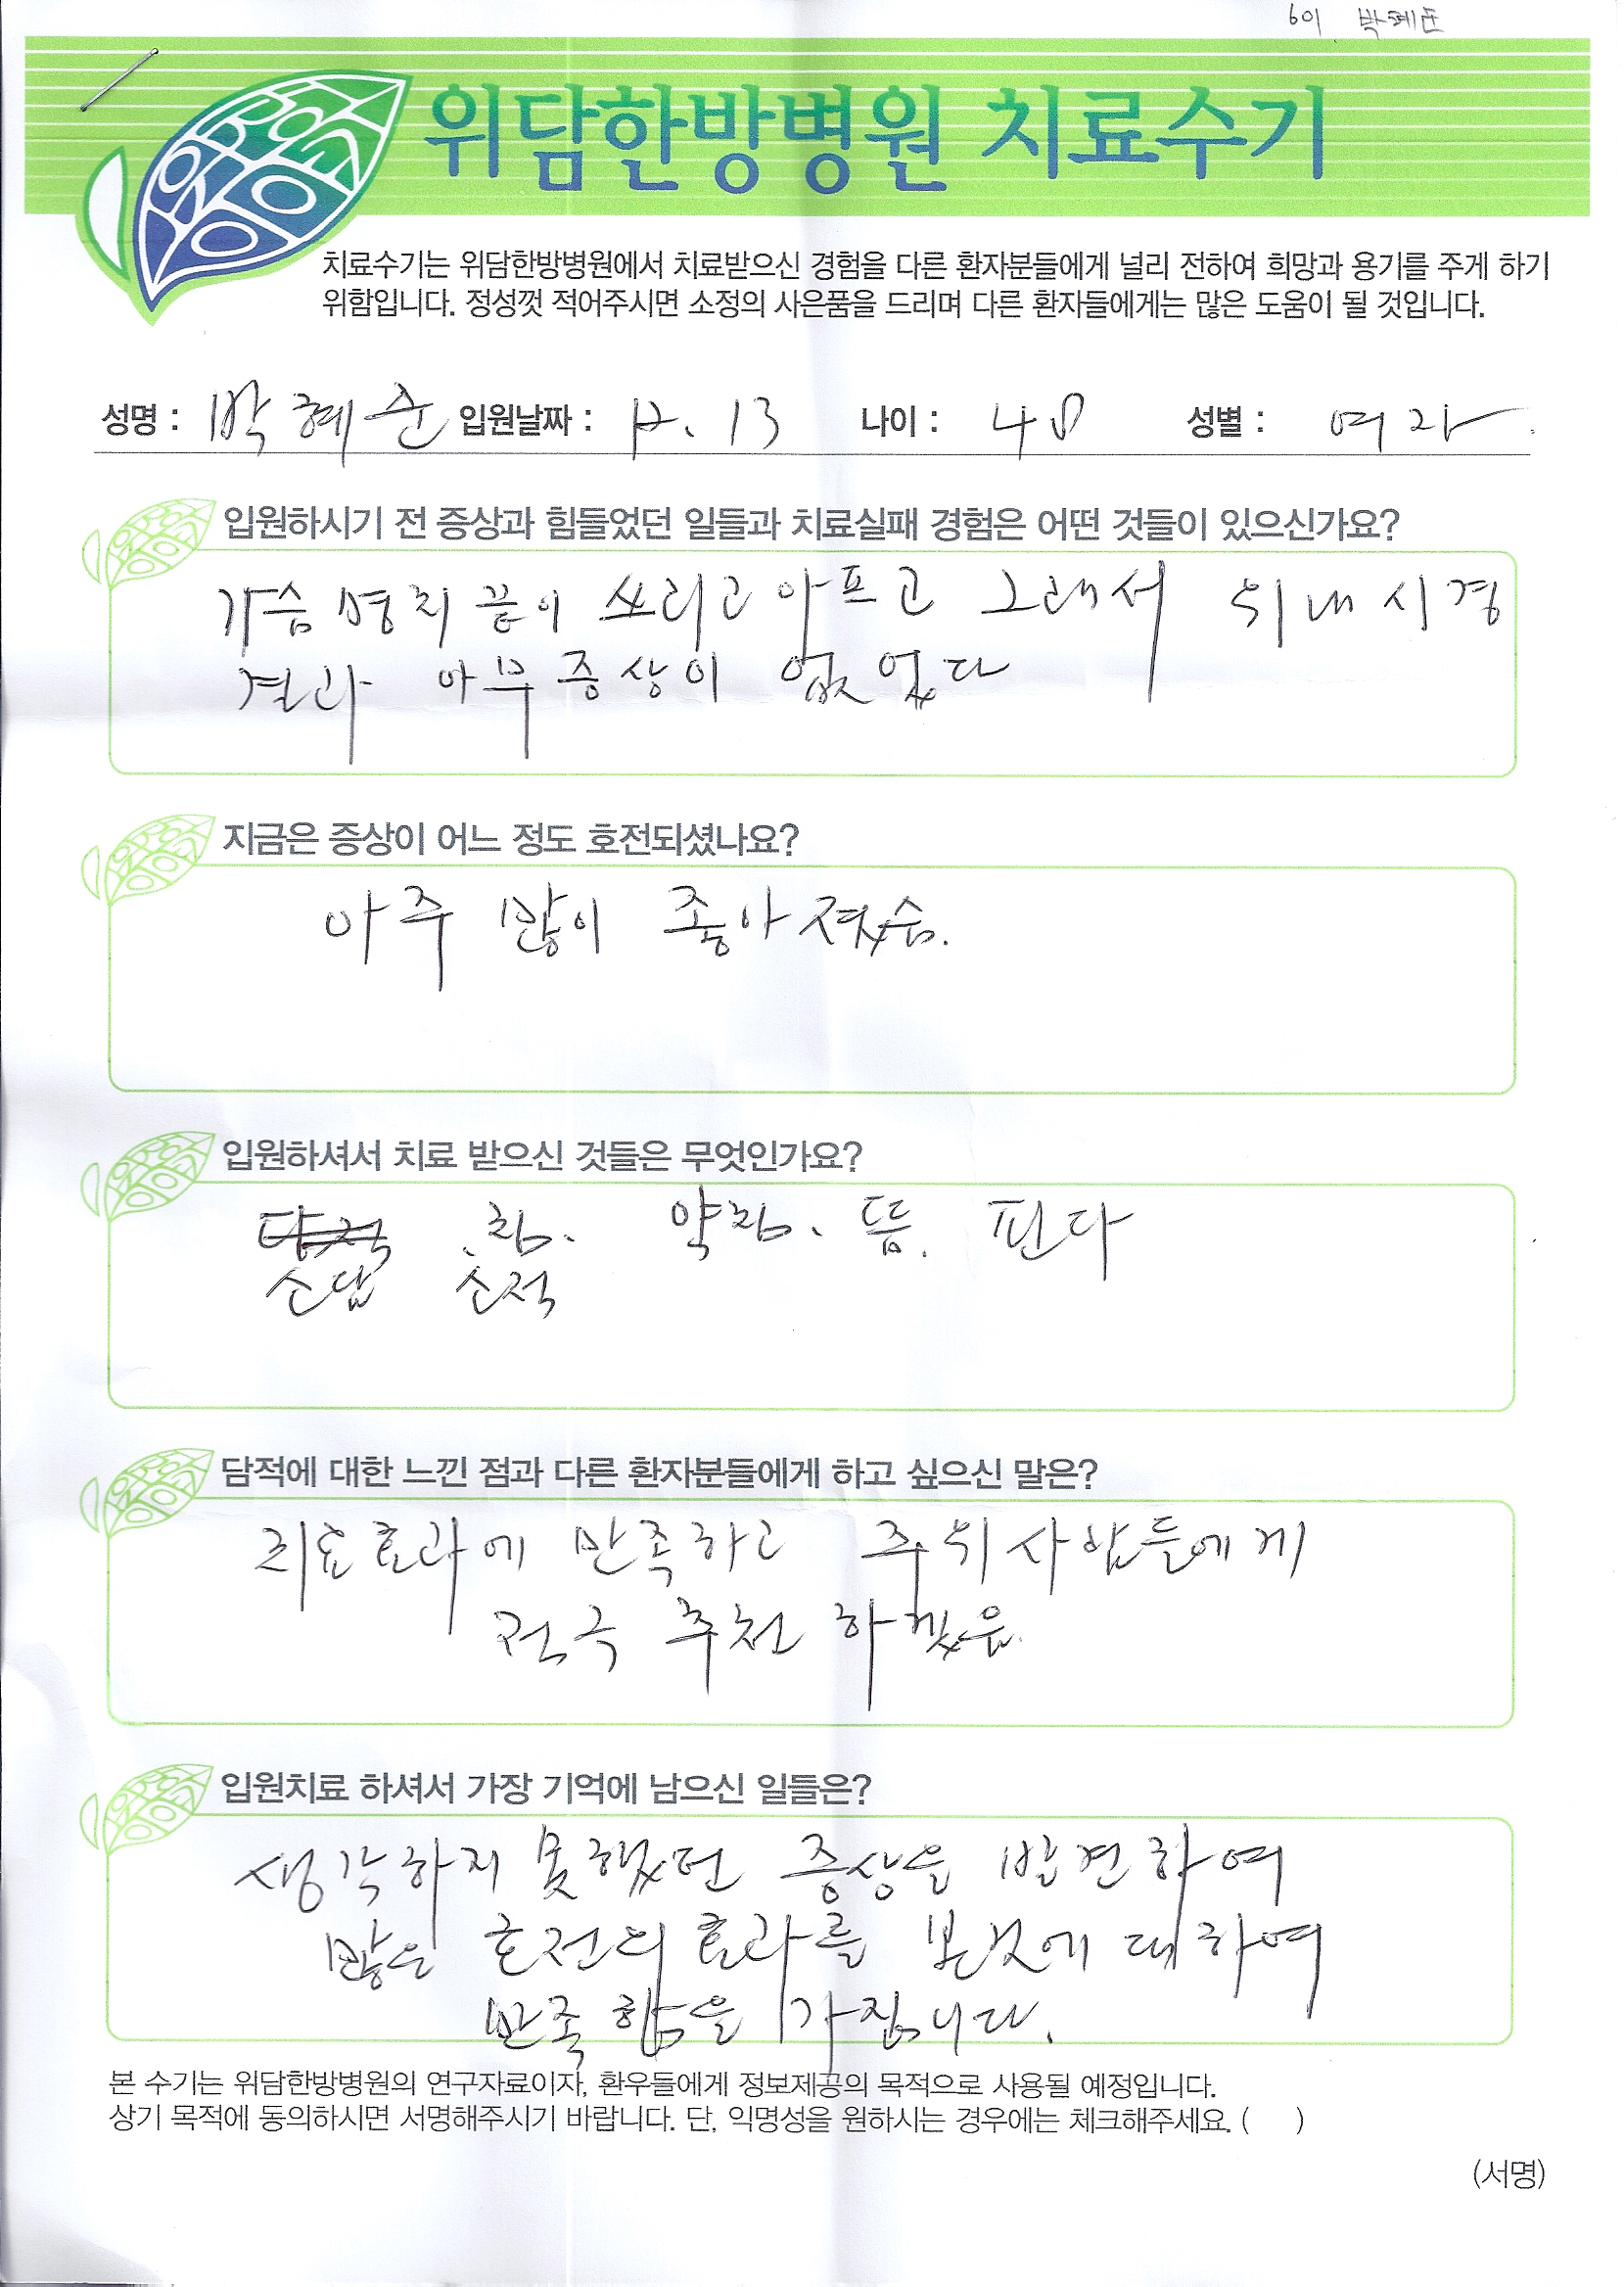 601 박혜준
위담한방병원 치료수기
치료수기는 위담한방병원에서 치료받으신 경험을 다른 환자분들에게 널리 전하여 희망과 용기를 주게 하기
위함입니다. 정성껏 적어주시면 소정의 사은품을 드리며 다른 환자들에게는 많은 도움이 될 것입니다.
성명 : 박혜준 입원날짜 : 12. 13 나이 : 48 성별 : 여자.
입원하시기 전 증상과 힘들었던 일들과 치료실패 경험은 어떤 것들이 있으신가요?
가슴 명치 끝이 쓰리고 아프고 그래서 위내시경
결과 아무 증상이 없었다
지금은 증상이 어느 정도 호전되셨나요?
아주 많이 좋아졌슴.
입원하셔서 치료 받으신 것들은 무엇인가요?
.침. 약침. 뜸. 핀다
소담 소적
담적에 대한 느낀 점과 다른 환자분들에게 하고 싶으신 말은?
치료효과에 만족하고 주위 사람들에게
적극 추천 하겠음.
입원치료 하셔서 가장 기억에 남으신 일들은?
생각하지 못했던 증상을 발견하여
많은 호전의 효과를 본것에 대하여
만족함을 가집니다.
본 수기는 위담한방병원의 연구자료이자, 환우들에게 정보제공의 목적으로 사용될 예정입니다.
상기 목적에 동의하시면 서명해주시기 바랍니다. 단, 익명성을 원하시는 경우에는 체크해주세요. ( )
(서명)